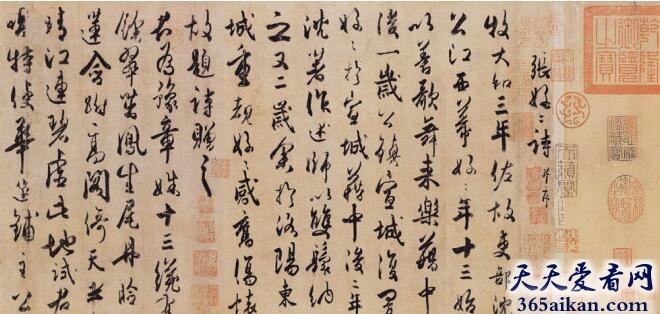 乾隆御覽之寶
張好〻詩 并序
牧大和三年佐故吏部沈
公江西幕好〻年十三始
以善歌舞来樂籍中
後一歲公鎮宣城復置
好〻於宣城籍中後二年
沈著作述師以雙鬟納
之又二歲余於洛陽東
城重覩好〻感舊傷懷
故題詩贈之
君為豫章姝十三纔有
餘翠茁鳳生尾丹臉
蓮含跗高閣倚天半
晴江連碧虛此地試君
唱特使華筵鋪主公
天天爱看网
365aikan.com